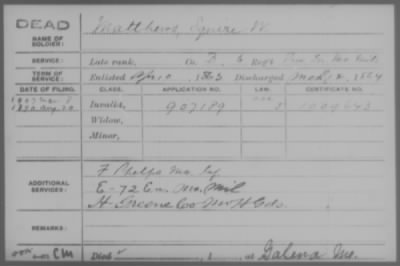 DEAD
NAME OF SOLDIER: Matthews, Squire W.
SERVICE: Late rank, Co. D, 6 Reg't Pro. En. Mo. Mil.
TERM OF SERVICE: Enlisted Apr 10, 1863 Discharged Mch 12, 1864
DATE OF FILING. CLASS. APPLICATION NO. LAW. CERTIFICATE NO.
1890 Aug 20 Invalid, 907189
Widow,
Minor,
ADDITIONAL SERVICES: F Phelps Mo. Inf
E-72 En. Mo. Mil
H. Greene Co Mo H Gds.
REMARKS:
CM Died , 1 , at Galena Mo.